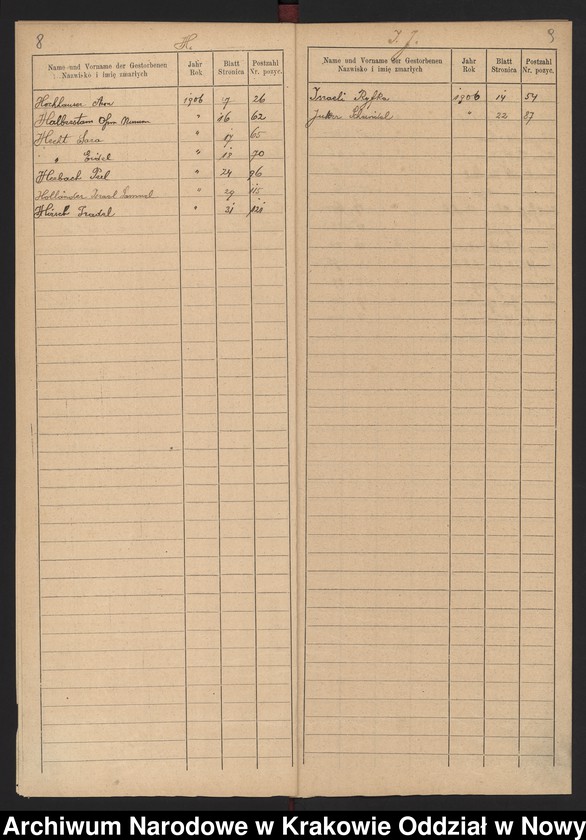 8
H.
Name und Vorname der Gestorbenen
Nazwisko i imię zmarłych
Jahr
Rok
Blatt
Stronica
Postzahl
Nr. pozyc.
Hochhauser Aron 1906 7 26
Halberstam 〃 16 62
Hecht Sara 〃 17 65
〃 Eidel 〃 18 70
Hesbach Perl 〃 24 96
Holländer Israel Samuel 〃 29 115
Hirsch Friedel 〃 31 121
I. J.
9
Name und Vorname der Gestorbenen
Nazwisko i imię zmarłych
Jahr
Rok
Blatt
Stronica
Postzahl
Nr. pozyc.
Israeli Ryfka 1906 14 54
〃 22 87
Archiwum Narodowe w Krakowie Oddział w Nowy